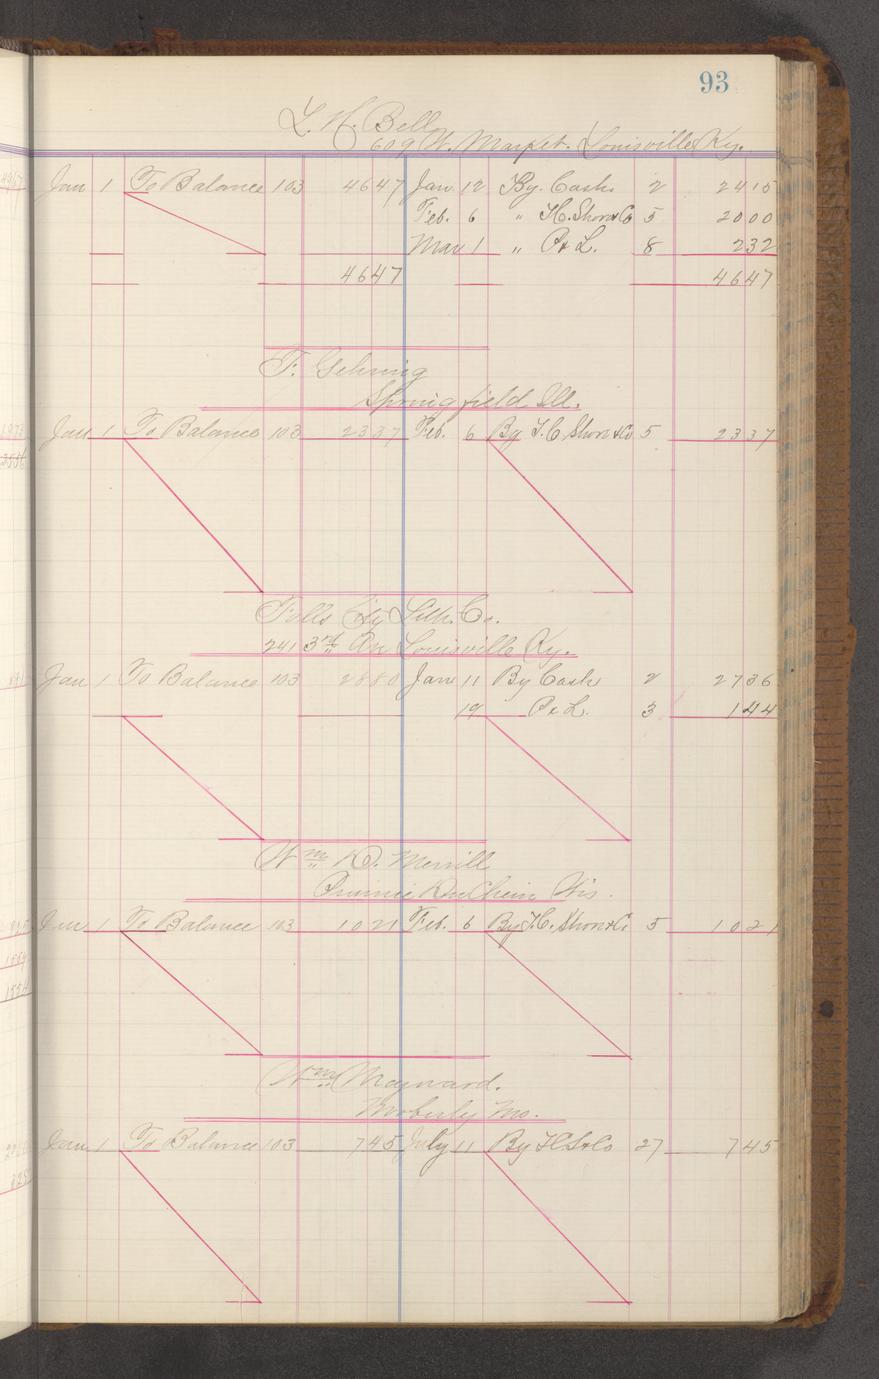 93
L. N. Bell
609 W. Market. Louisville Ky.
Jan 1 To Balance 103 4647 Jan 12 By Cash 2 2415
Feb. 6 " H. Shorn & Co 5 2000
Mar 1 " P & L. 8 232
4647 4647
F. Gehring
Springfield Ill.
Jan 1 To Balance 103 2337 Feb. 6 By H. C. Shorn & Co 5 2337
Falls City Lith. Co.
241 3rd Ave Louisville Ky.
Jan 1 To Balance 103 2880 Jan 11 By Cash 2 2736
19 P & L. 3 144
Wm D. Merrill
Prairie Du Chein Wis.
Jan 1 To Balance 103 1021 Feb. 6 By H. C. Shorn & Co 5 1021
Wm Maynard.
Moberly Mo.
Jan 1 To Balance 103 745 July 11 By H C S & Co 27 745